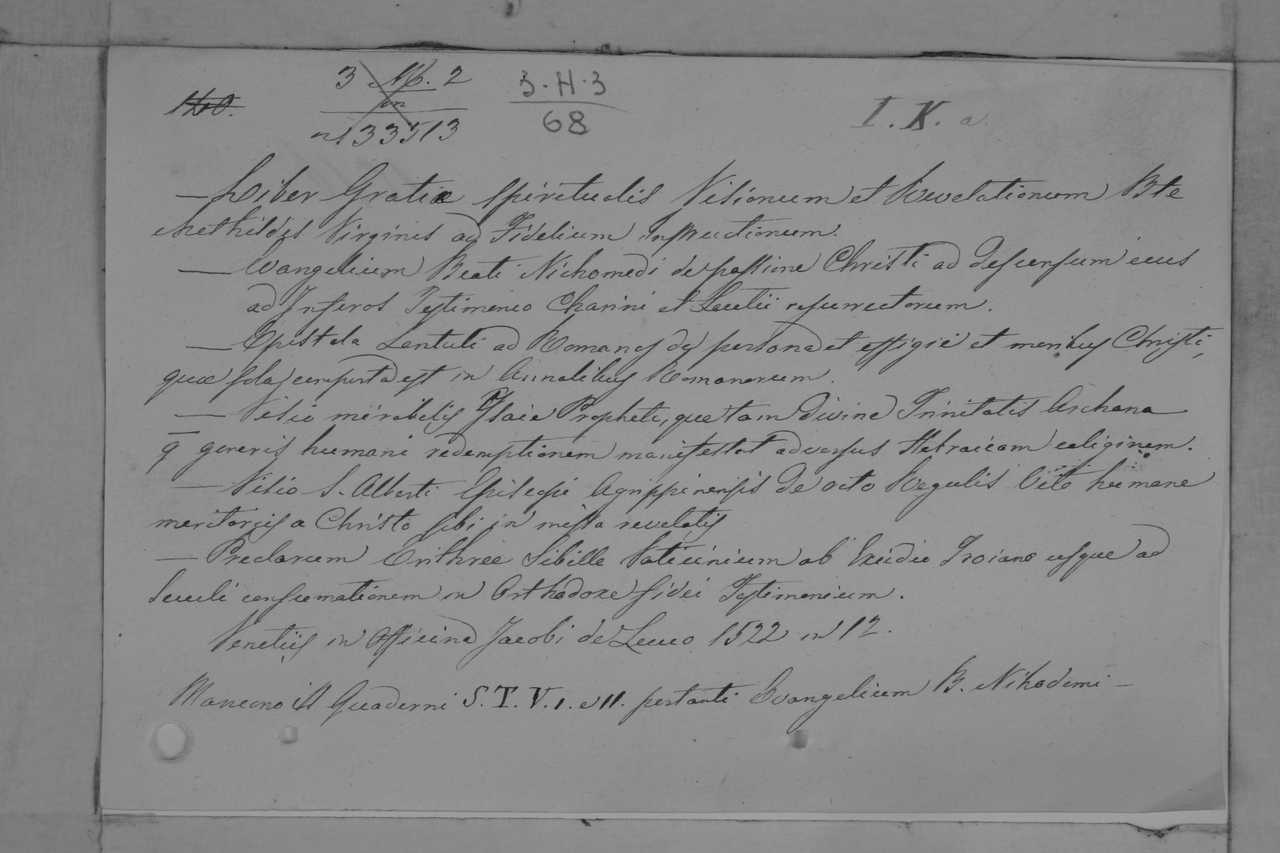 140.
3 Ab. 2
in
n133513
3.H.3
68
I. K. a
— Liber Gratiæ Spiritualis Visionum et Revelationum Bte
Methildis Virginis ad Fidelium instructionem.
— Evangelium Beati Nichomedi de passione Christi ad descensum eius
ad Inferos Testimenio Charini et Leutii resurrectorum.
— Epistola Lentuli ad Romanos de persona et effigie et moribus Christi,
quæ sola comperta est in Annalibus Romanorum.
— Visio mirabilis Ysaie Prophete, que tam divine Trinitatis Archana
q̄ generis humani redemptionem manifestat adversus Hebraicam caliginem.
— Visio S. Alberti Episcopi Agrippinensis de octo Regulis Vite humane
meritorijs a Christo sibi in missa revelatis
— Preclarum Erithree Sibille Vaticinium ab Excidio Troiano usque ad
Seculi consumationem in Orthodoxe fidei Testimonium.
Venetijs in Officina Jacobi de Leuco 1522 in 12.
Mancano i Quaderni S. T. V. 1. e 11. portanti Evangelium B. Nikodemi —